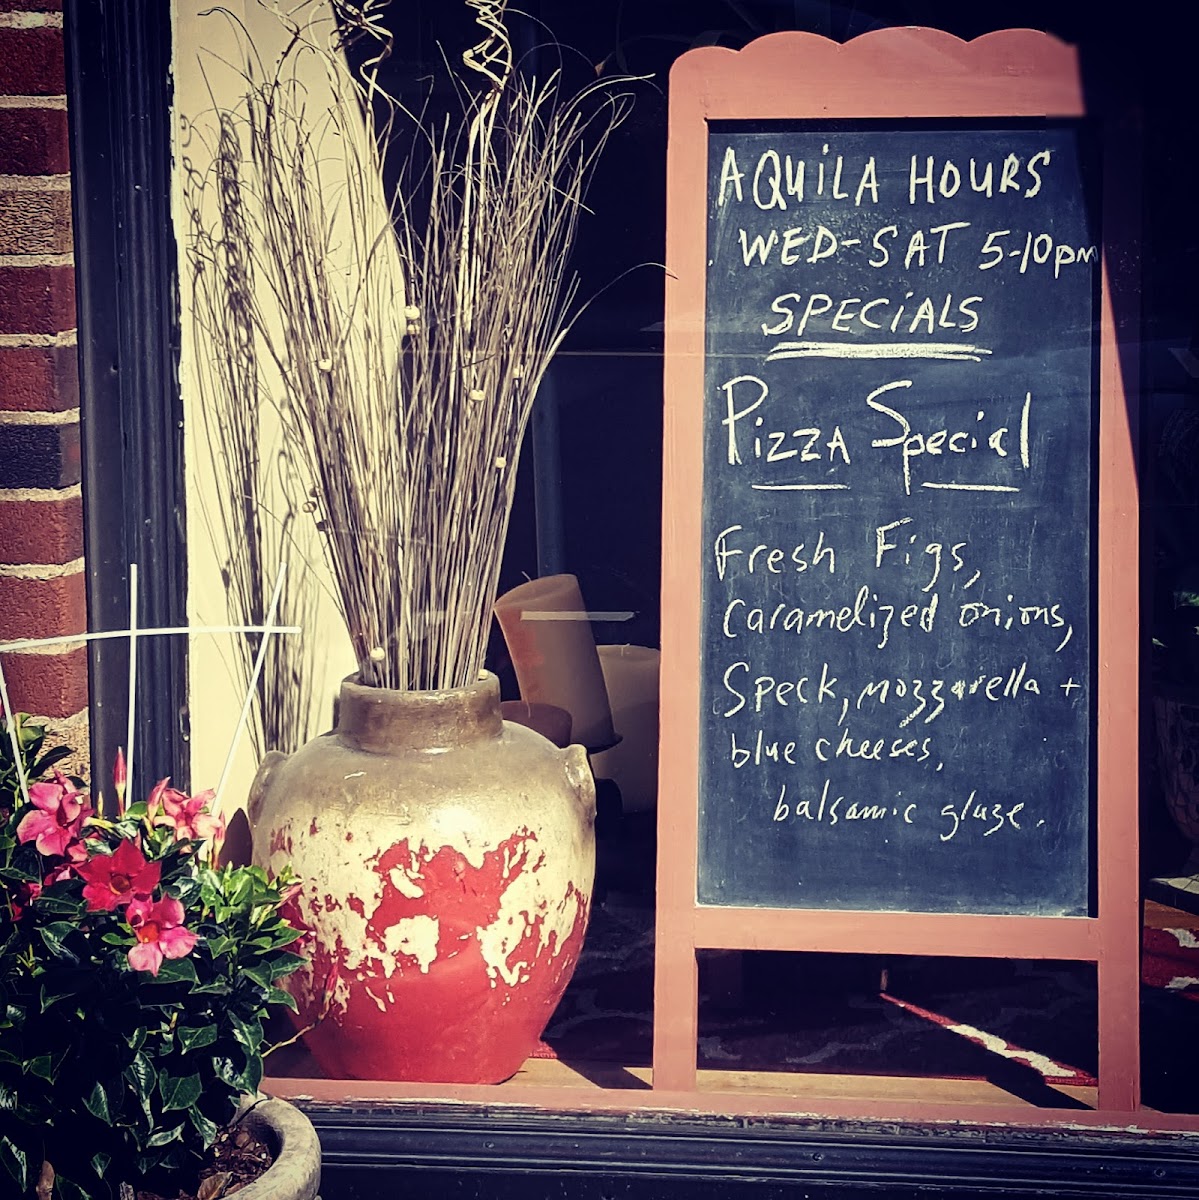 AQUiLA HOURS
WED-SAT 5-10pm
SPECiALS
PizzA Special
Fresh Figs,
Caramelized onions,
Speck, mozzarella +
blue cheeses,
balsamic glaze.